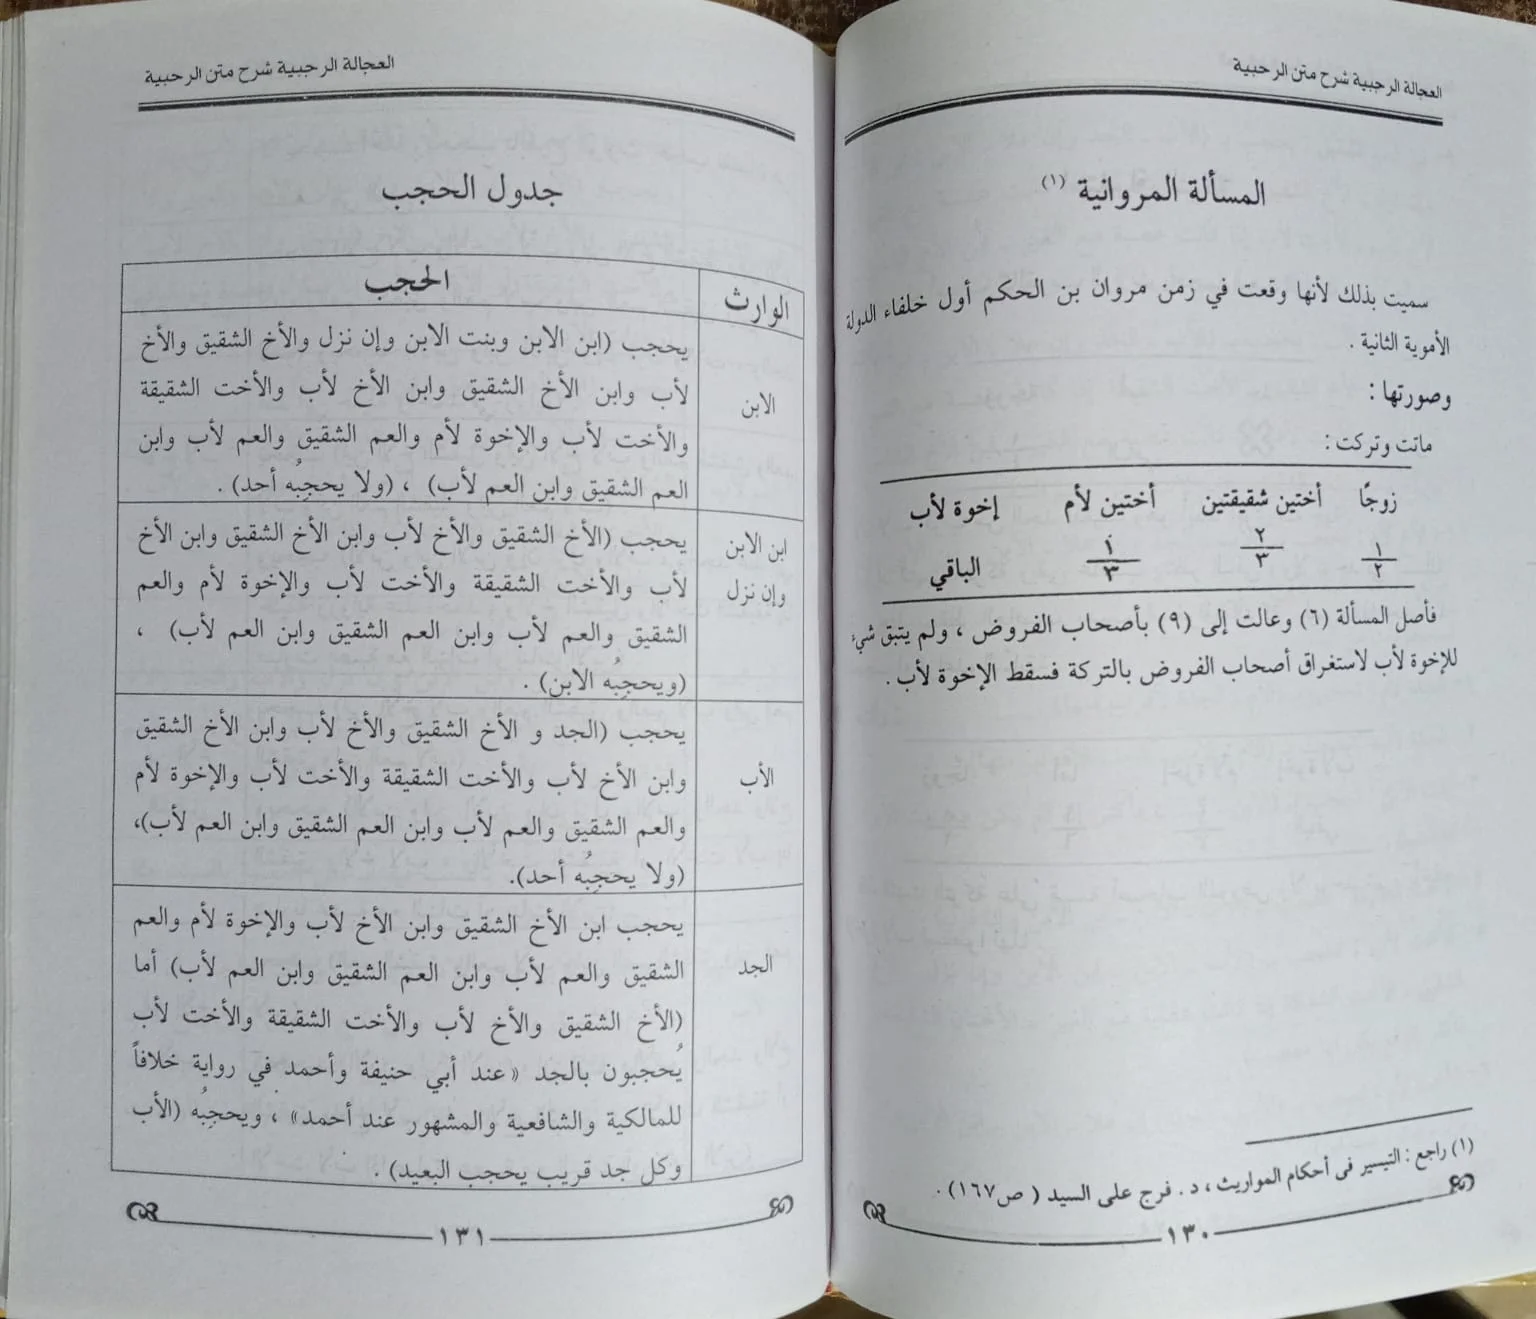 العجالة الرجبية شرح متن الرحبية
المسألة المروانية (١)
سميت بذلك لأنها وقعت في زمن مروان بن الحكم أول خلفاء الدولة
الأموية الثانية .
وصورتها :
ماتت وتركت :
زوجًا أختين شقيقتين أختين لأم إخوة لأب
١/٢ ٢/٣ ١/٣ الباقي
فأصل المسألة (٦) وعالت إلى (٩) بأصحاب الفروض ، ولم يتبق شيء
للإخوة لأب لاستغراق أصحاب الفروض بالتركة فسقط الإخوة لأب .
(١) راجع : التيسير فى أحكام المواريث ، د . فرج على السيد ( ص١٦٧) .
١٣٠
العجالة الرجبية شرح متن الرحبية
جدول الحجب
الوارث الحجب
يحجب (ابن الابن وبنت الابن وإن نزل والأخ الشقيق والأخ
الابن لأب وابن الأخ الشقيق وابن الأخ لأب والأخت الشقيقة
والأخت لأب والإخوة لأم والعم الشقيق والعم لأب وابن
العم الشقيق وابن العم لأب) ، (ولا يحجبُه أحد) .
ابن الابن يحجب (الأخ الشقيق والأخ لأب وابن الأخ الشقيق وابن الأخ
وإن نزل لأب والأخت الشقيقة والأخت لأب والإخوة لأم والعم
الشقيق والعم لأب وابن العم الشقيق وابن العم لأب) ،
(ويحجبُه الابن) .
يحجب (الجد و الأخ الشقيق والأخ لأب وابن الأخ الشقيق
الأب وابن الأخ لأب والأخت الشقيقة والأخت لأب والإخوة لأم
والعم الشقيق والعم لأب وابن العم الشقيق وابن العم لأب)،
(ولا يحجبُه أحد).
يحجب ابن الأخ الشقيق وابن الأخ لأب والإخوة لأم والعم
الجد الشقيق والعم لأب وابن العم الشقيق وابن العم لأب) أما
(الأخ الشقيق والأخ لأب والأخت الشقيقة والأخت لأب
يُحجبون بالجد «عند أبي حنيفة وأحمد في رواية خلافاً
للمالكية والشافعية والمشهور عند أحمد» ، ويحجبُه (الأب
وكل جد قريب يحجب البعيد) .
١٣١